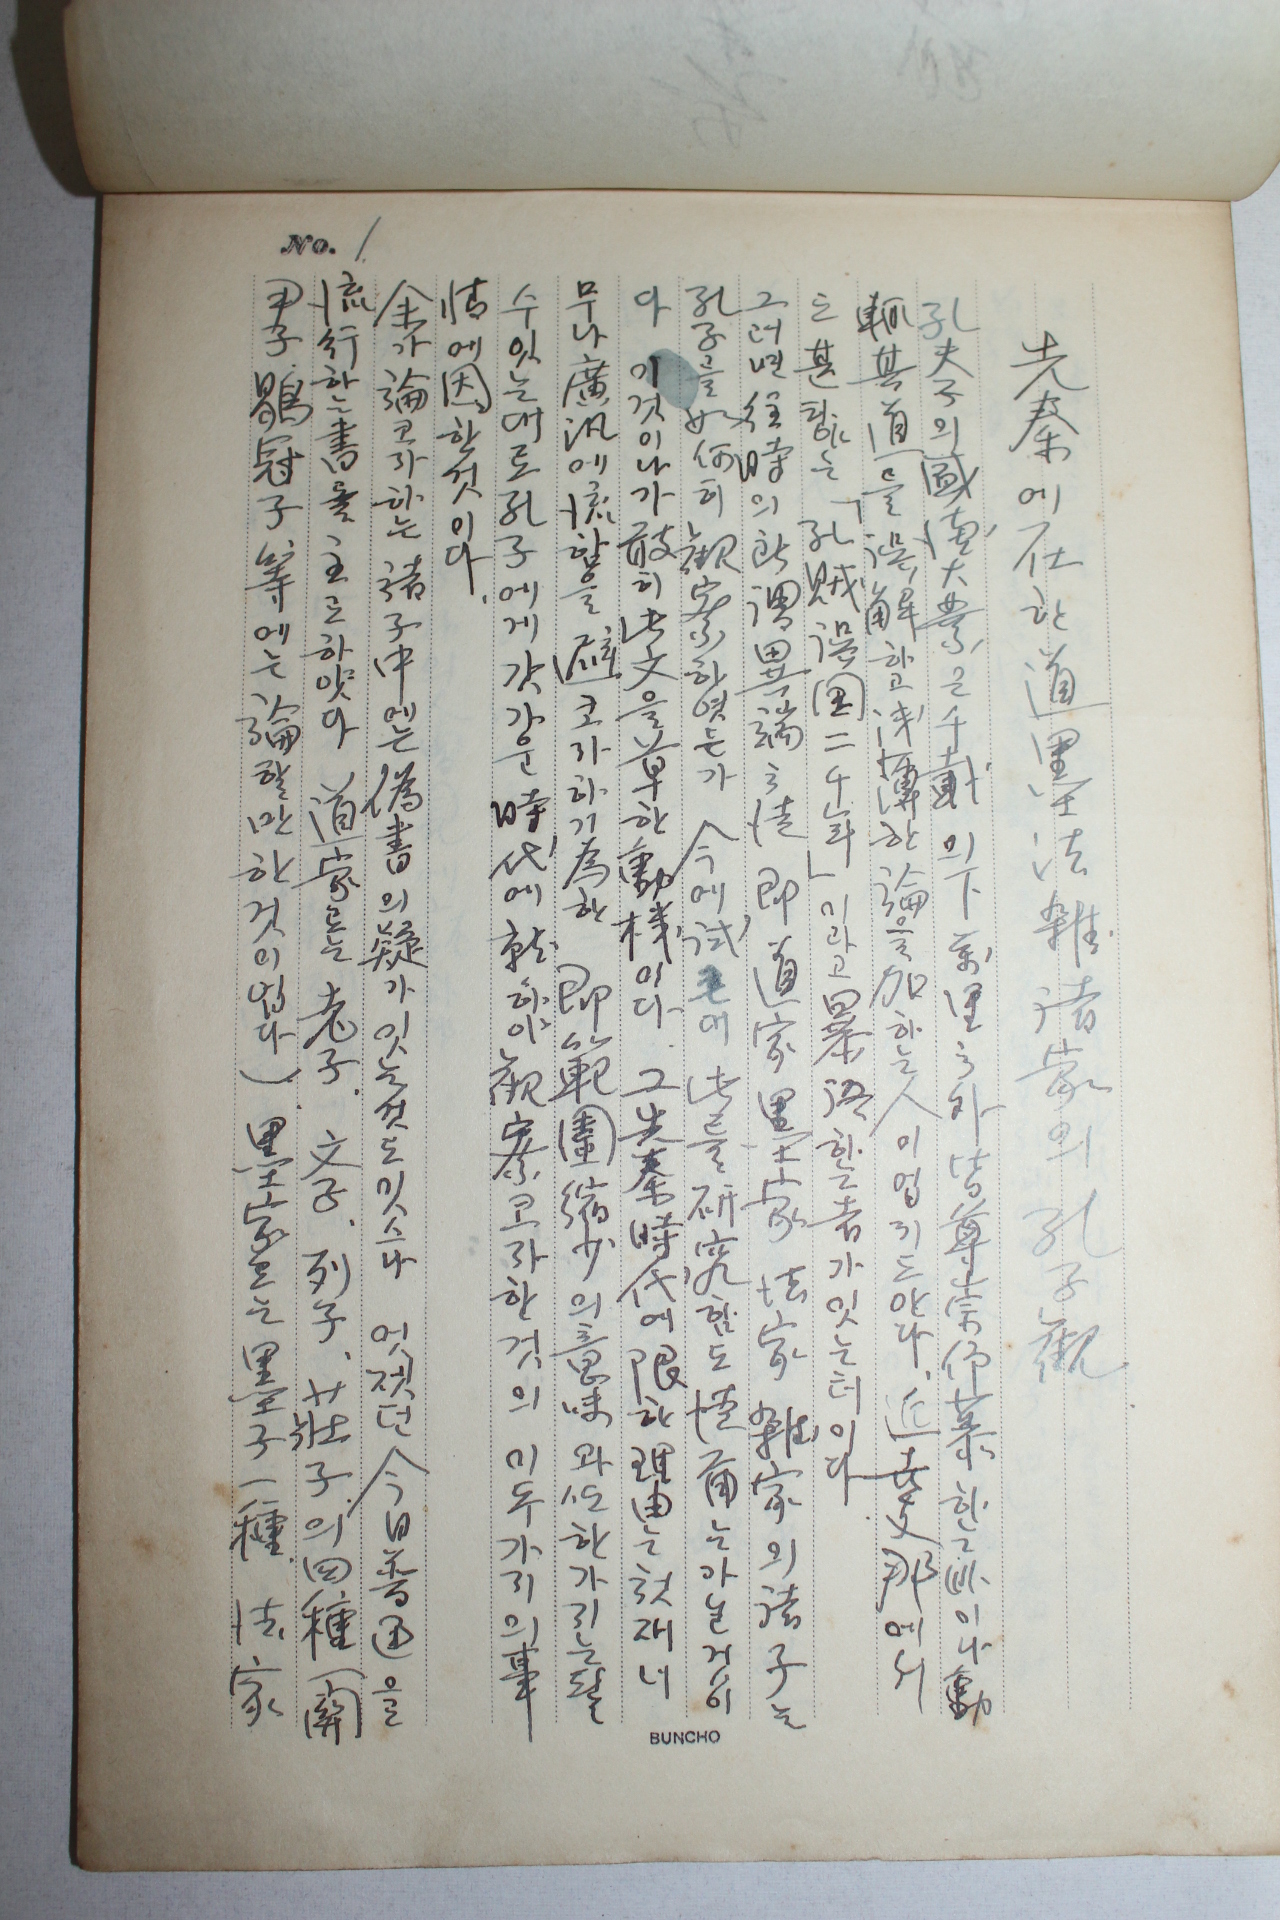 No. 1
先秦에 在한 道墨法雜諸家의 孔子觀
孔夫子의 國漢大業은 千載의 下 萬里之外 皆尊崇仰慕하는 바이나 動
輒其道를 誤解하고 浅薄한 論을 加하는 人이 업지도 안다. 近支那에서
도 甚한 는 「孔賊誤国二千年」이라고 暴語하는 者가 잇는터이다
그러면 往時의 所謂異端之徒 即 道家 墨家 法家 雜家의 諸子는
孔子를 如何히 觀察하엿든가 今에 試 此를 研究함도 徒爾는 아닐 것이
다 이것이 나가 敢히 此文을 草한 動機이다. 그 先秦時代에 限한 理由는 첫재 너
무나 廣汎에 流함을 避코자 하기 為한 即 範圍縮少의 意味와 또 한가지는 될
수 잇는대로 孔子에게 갓가운 時代에 就하야 觀察코자 한 것의 이 두가지의 事
情에 因한 것이다.
余가 論코자 하는 諸子中에는 偽書의 疑가 잇는 것도 잇스나 엇젯던 今日 普通을
流行하는 書를 主로 하얏다 道家로는 老子. 文子. 列子. 莊子.의 四種 (關
尹子 鶡冠子 等에는 論할만한 것이 업다) 墨家로는 墨子一種. 法家
BUNCHO